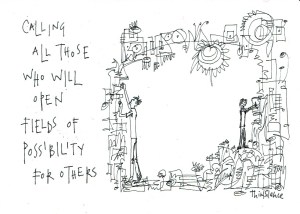 CALLING
ALL THOSE
WHO WILL
OPEN
FIELDS OF
POSSIBILITY
FOR OTHERS